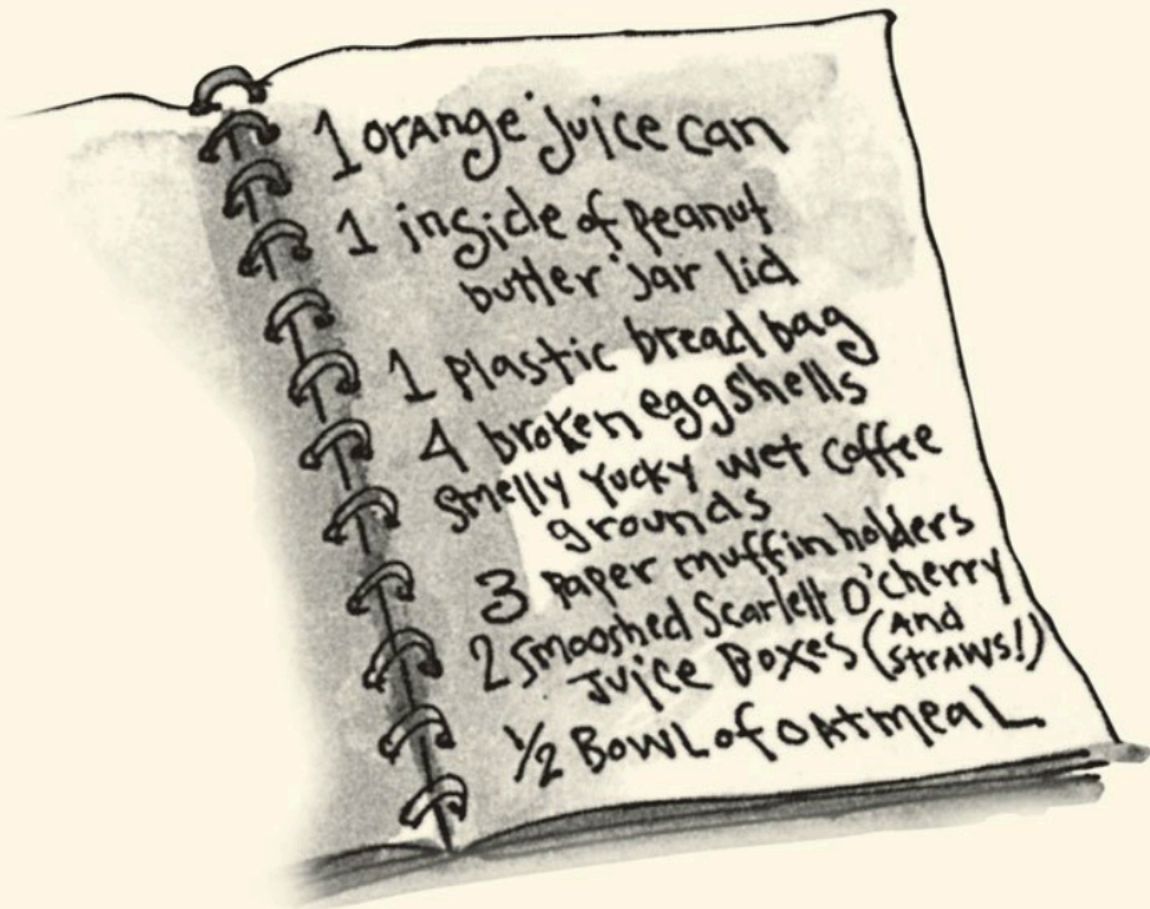 1 orange juice can
1 inside of peanut
butter jar lid
1 plastic bread bag
4 broken eggshells
smelly yucky wet coffee
grounds
3 paper muffin holders
2 smooshed Scarlett O'cherry
Juice Boxes (And
Straws!)
1/2 Bowl of oatmeal